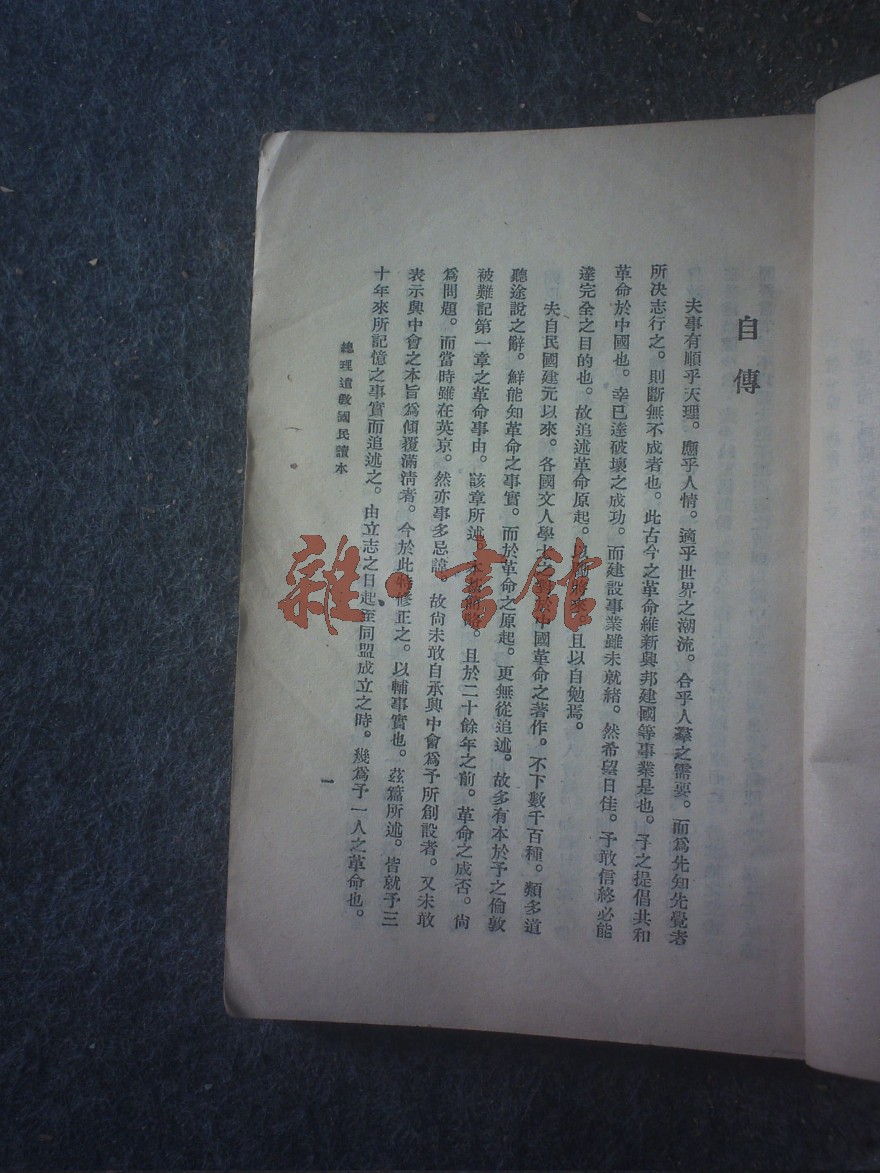 自傳
夫事有順乎天理。應乎人情。適乎世界之潮流。合乎人羣之需要。而爲先知先覺者
所決志行之。則斷無不成者也。此古今之革命維新興邦建國等事業是也。予之提倡共和
革命於中國也。幸已達破壞之成功。而建設事業雖未就緒。然希望日佳。予敢信終必能
達完全之目的也。故追述革命原起。以勵將來。且以自勉焉。
夫自民國建元以來。各國文人學士之對於中國革命之著作。不下數千百種。類多道
聽途說之辭。鮮能知革命之事實。而於革命之原起。更無從追述。故多有本於予之倫敦
被難記第一章之革命事由。該章所述。本甚簡略。且於二十餘年之前。革命之成否。尙
爲問題。而當時雖在英京。然亦事多忌諱。故尙未敢自承興中會爲予所創設者。又未敢
表示興中會之本旨爲傾覆滿淸者。今於此特修正之。以輔事實也。茲篇所述。皆就予三
十年來所記憶之事實而追述之。由立志之日起至同盟成立之時。幾爲予一人之革命也。
總理遺敎國民讀本
一
雜·書館